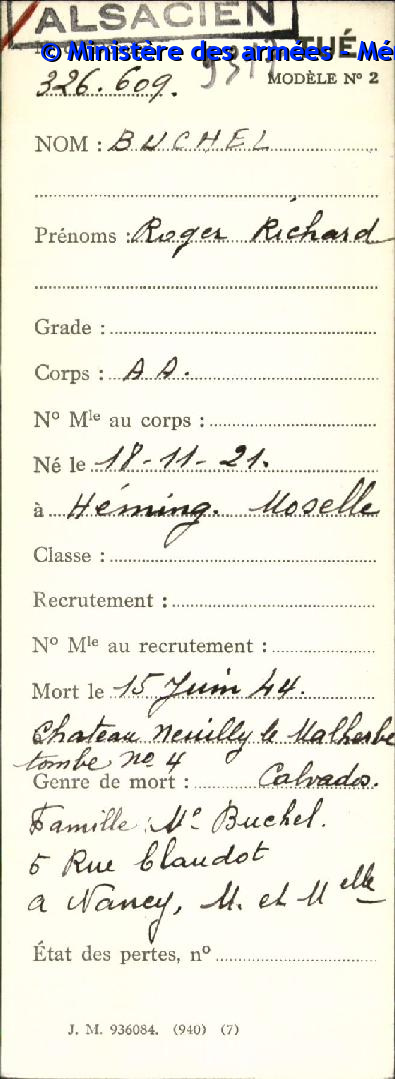 ALSACIEN
© Ministère des armées - Mé
TUÉ
326.609.
MODÈLE Nº 2
NOM : BUCHEL
Prénoms : Roger Richard
Grade :
Corps : A A.
Nº Mle au corps :
Né le 18-11-21.
à Héming. Moselle
Classe :
Recrutement :
Nº Mle au recrutement :
Mort le 15 Juin 44.
Chateau Neuilly le Malherbe
tombe no 4
Genre de mort : Calvados.
Famille : Me Buchel.
5 Rue Claudot
a Nancy, M. et Melle
État des pertes, nº
J. M. 936084. (940) (7)